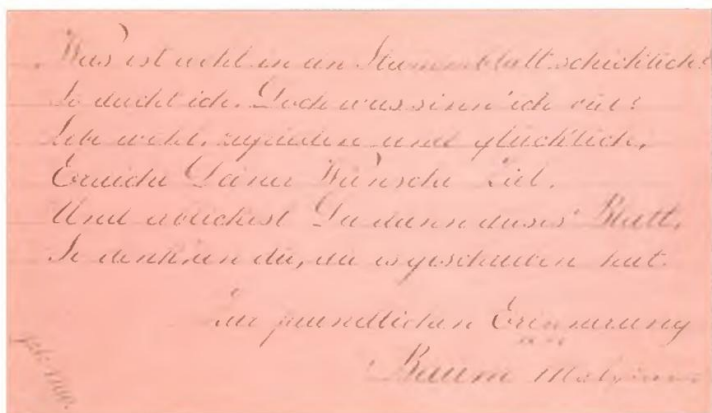 Was ist wohl in ein Stammblatt schicklich?
So dacht ich. Doch was sinn' ich viel!
Lebe wohl, zufrieden und glücklich,
Erreiche Deiner Wünsche Ziel.
Und erblickest Du dann dieses Blatt,
So denk an die, die es geschrieben hat.
Zur freundlichen Erinnerung
Baum